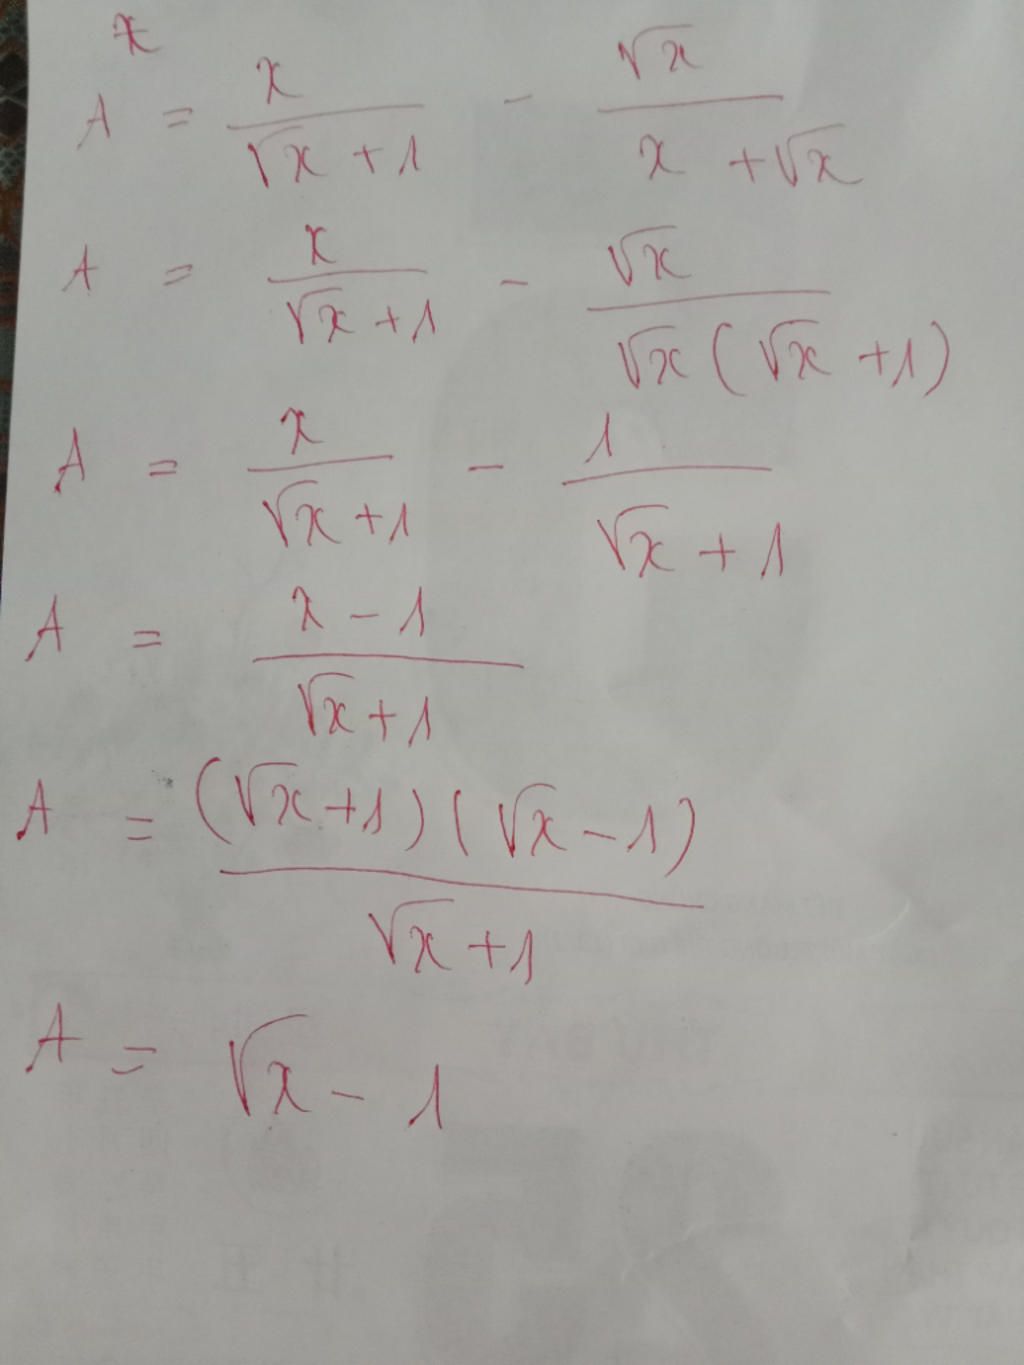 x
A = x/(√x + 1) - √x/(x + √x)
A = x/(√x + 1) - √x/(√x(√x + 1))
A = x/(√x + 1) - 1/(√x + 1)
A = (x - 1)/(√x + 1)
A = (√x + 1)(√x - 1)/(√x + 1)
A = √x - 1